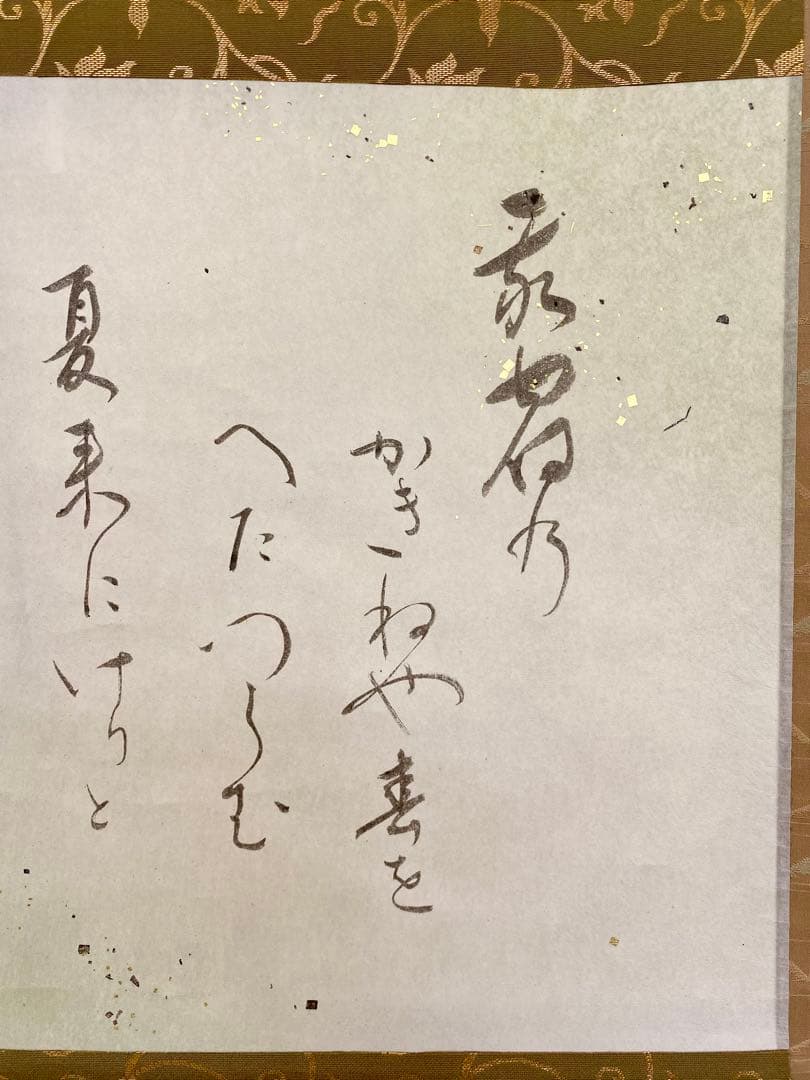 我宿乃
かきねや春を
へたつらむ
夏来にけりと